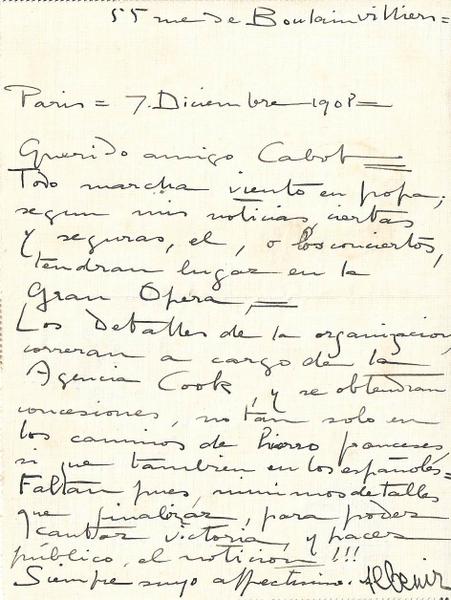 55 rue de Boulainvilliers =
Paris = 7. Diciembre 1908 =
Querido amigo Cabot =
Todo marcha viento en popa;
segun mis noticias ciertas
y seguras, el, o los conciertos,
tendran lugar en la
Gran Opera, =
Los detalles de la organizacion,
correran a cargo de la
Agencia Cook, y se obtendran
concesiones, no tan solo en
los caminos de hierro franceses,
si que tambien en los españoles =
Faltan pues, minimos detalles
que finalizar, para poder
cantar victoria, y hacer
público, el noticion !!!
Siempre suyo affectisimo. Albeniz